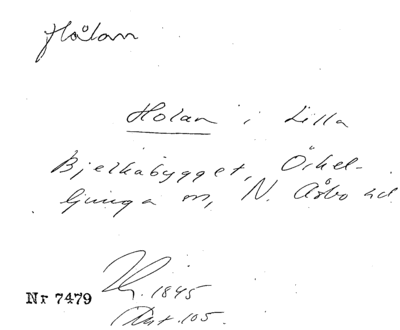 Hålan
Holan i Lilla
Bjelkabygget, Örkel-
ljunga sn, N. Åsbo hd.
1845
Nr 7479
Ant. 105.